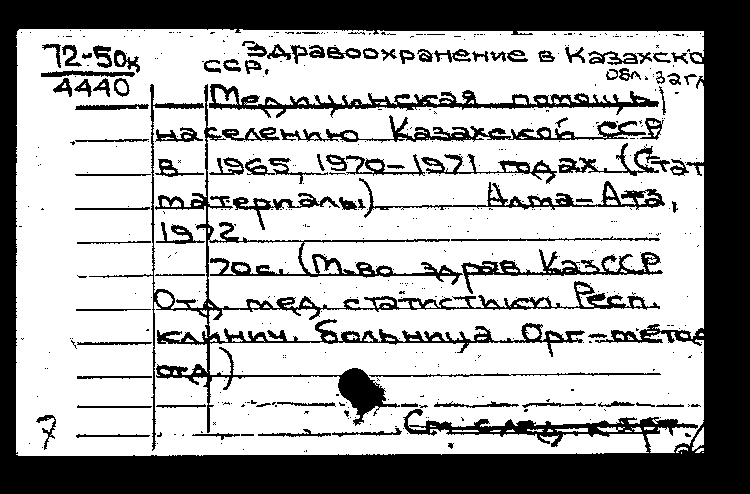 72-50к
4440
Здравоохранение в Казахско
ССР.
Обл. загл
Медицинская помощь
населению Казахской ССР
в 1965, 1970-1971 годах. (Стат
материалы). Алма-Ата,
1972.
70с. (М-во здрав. КазССР
Отд. мед. статистики. Респ.
клинич. больница. Орг.-метод
отд.)
См. след. к-рт.
7